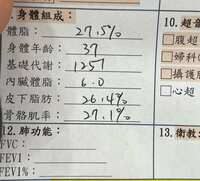 身體組成:
體脂: 27.5%
身體年齡: 37
基礎代謝: 1257
內臟體脂: 6.0
皮下脂肪: 26.4%
骨骼肌率: 27.1%
12.肺功能:
FVC:
FEV1:
FEV1%:
10.超音
腹超
婦科(
攝護腺
心超
13.衛教: